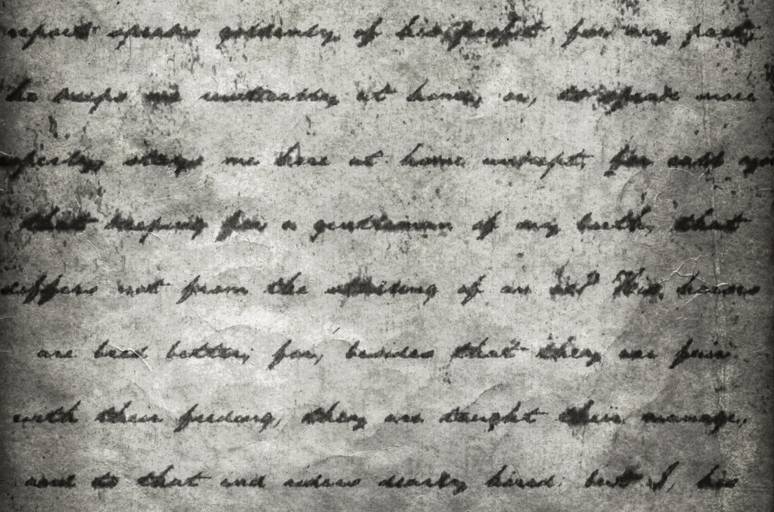 report speaks goldenly of his profit. for my part,
he keeps me rustically at home, or, to speak more
properly, stays me here at home unkept; for call you
that keeping for a gentleman of my birth, that
differs not from the stalling of an ox? His horses
are bred better; for, besides that they are fair
with their feeding, they are taught their manage,
and to that end riders dearly hired: but I, his